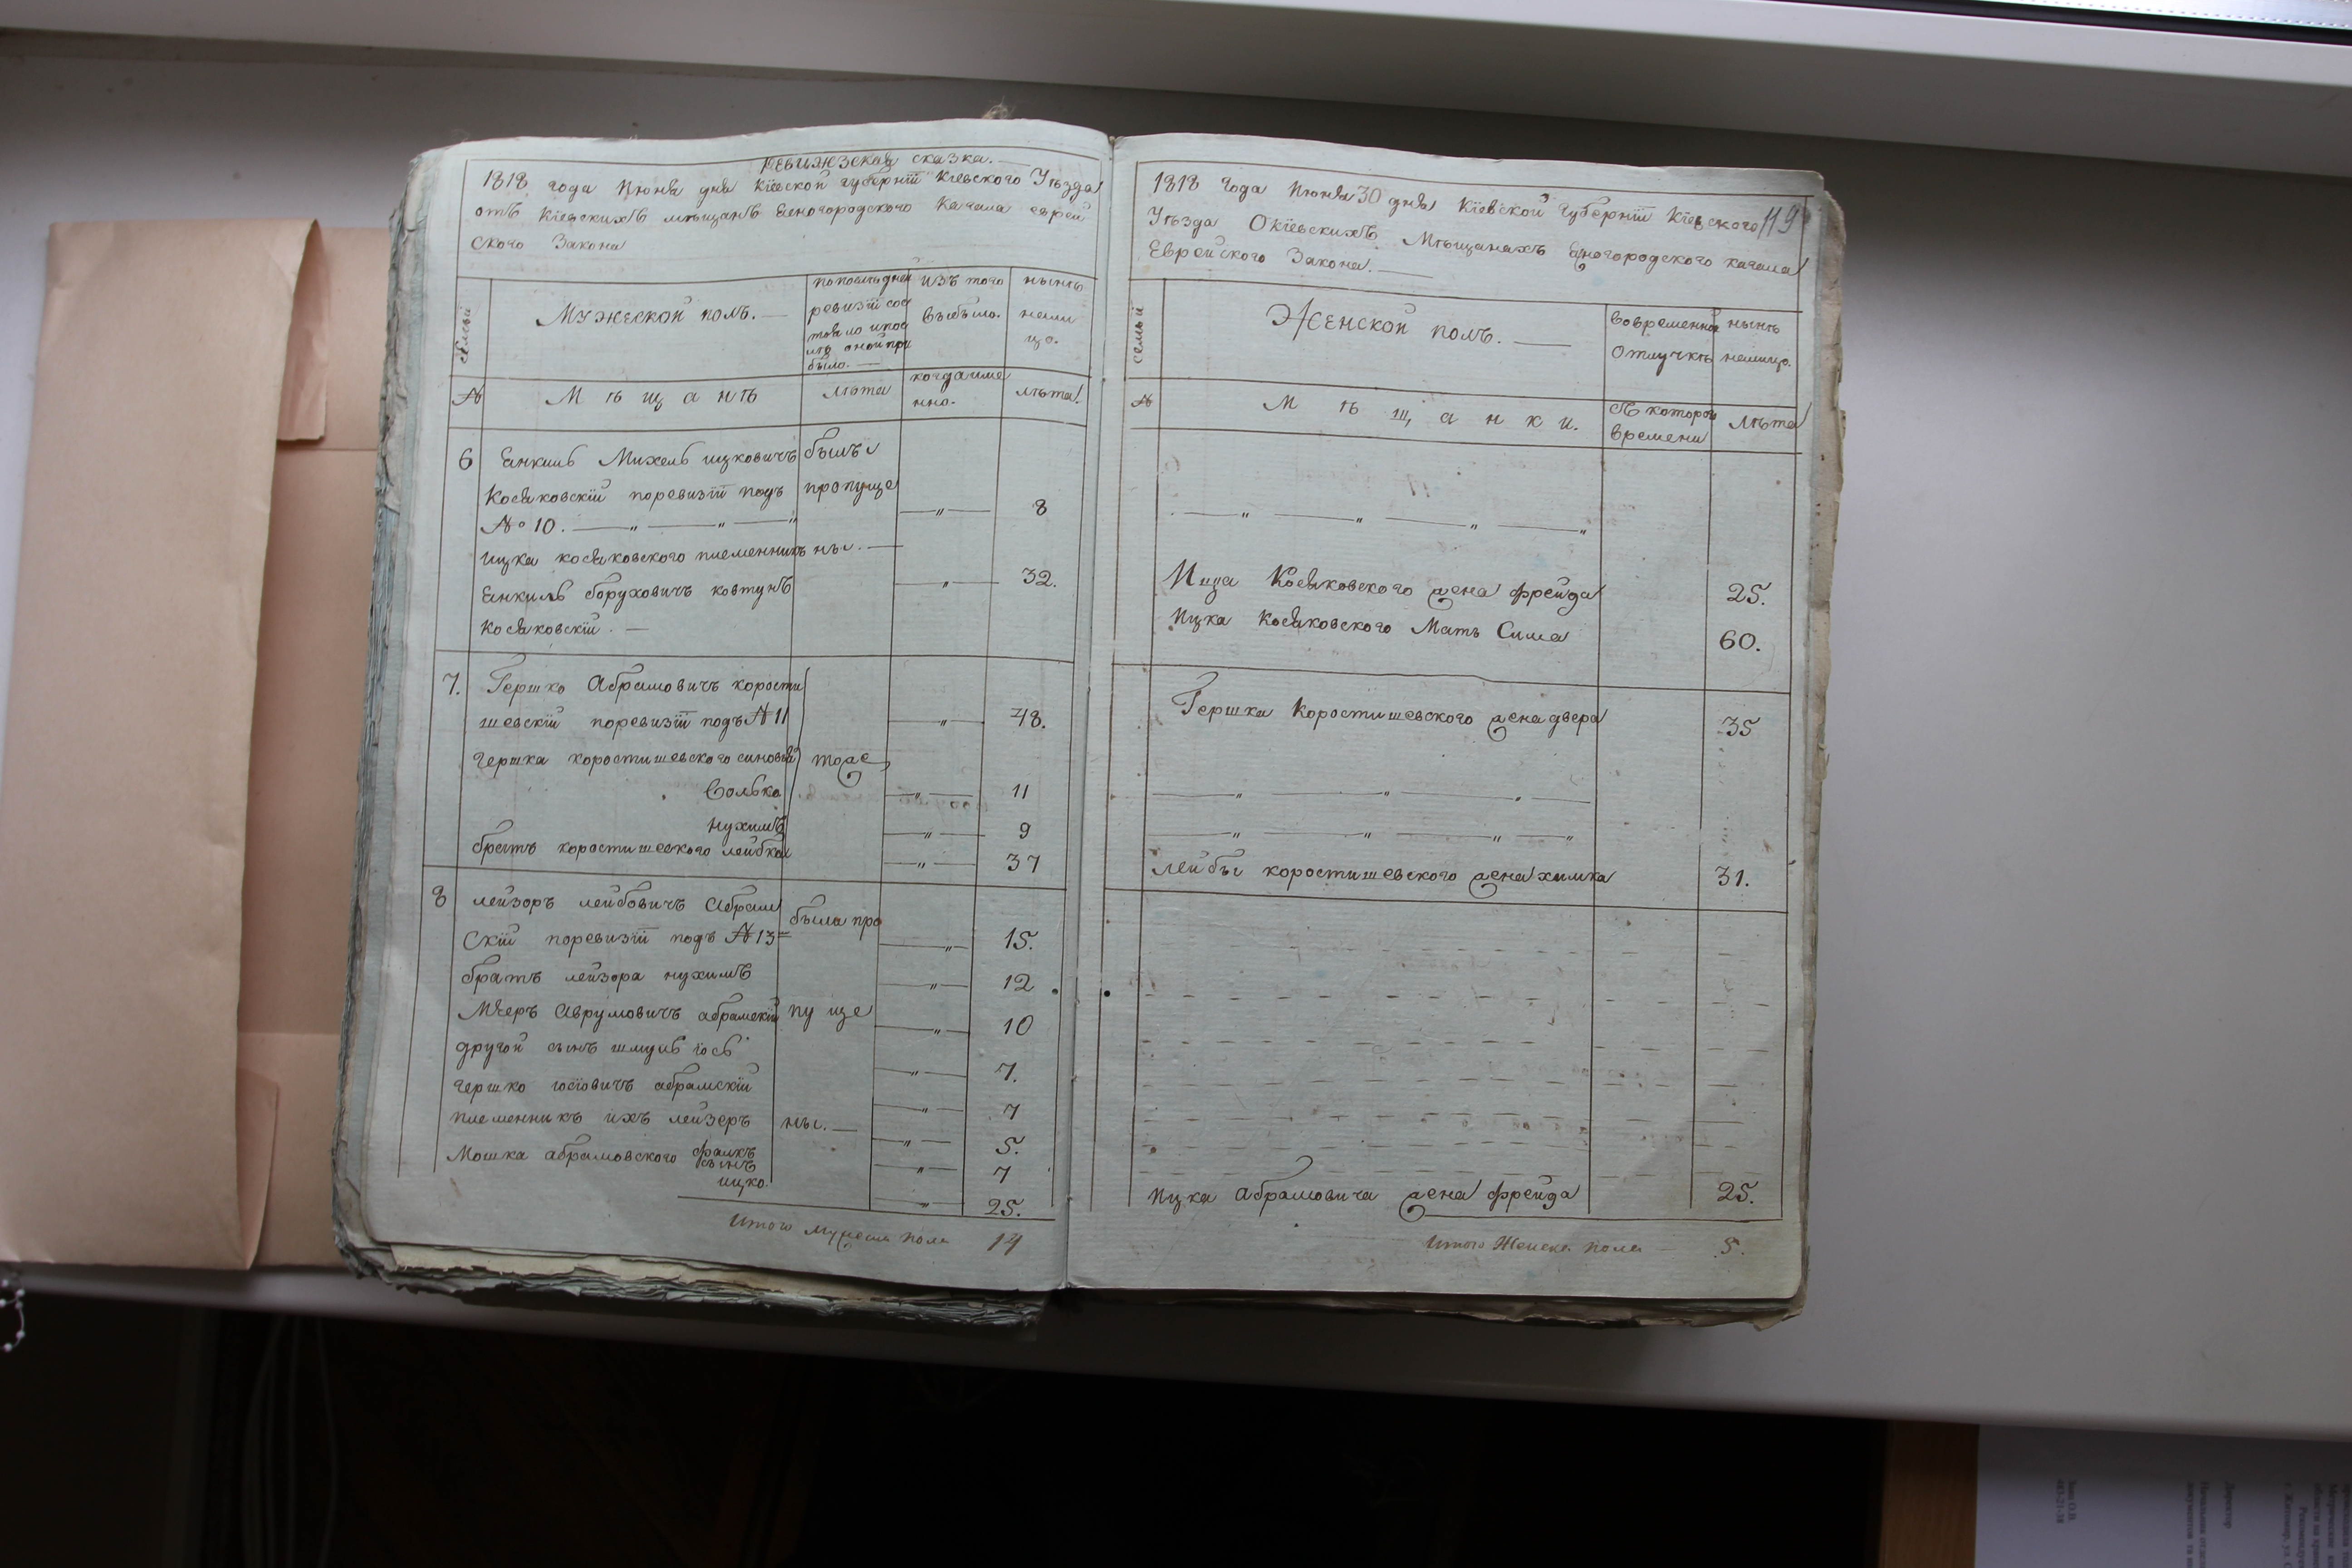 Ревижзская сказка.
1818 года Июня дня Кіевской губерніи Кіевского Уѣзда
отъ Кіевскихъ мѣщанъ Беногородского Кагала еврей
ского Закона
семьи
Мужеской полъ.
попоследней
ревизіи сос
тояло ипос
лѣ оной при
было.
изъ того
выбыло.
нынѣ
нали
цо.
№
Мѣщанѣ
лѣта
когдаиме
нно.
лѣта.
6 Енкиль Михель ицковичъ былъ
Косяковскій поревизіи подъ пропуще
№ 10. 8
ицка косяковского племенникъ ны.
Енкиль боруховичъ ковтунъ 32.
Косяковскій.
7. Гершко Абрамовичъ корости
шевскій поревизіи подъ № 11 48.
гершка коростишевского синовья тоже
Волько 11
нухимъ 9
братъ коростишевского лейбка 37
8 лейзоръ лейбовичъ Абрам была про
скій поревизіи подъ № 13 15.
братъ лейзора нухимъ 12
Меръ Аврумовичъ абрамскій пу ще 10
другой сынъ
гершко іосіовичъ абрамскій 7.
племенникъ ихъ лейзеръ ны. 7
5.
Мошка абрамовского
сынъ 7
ицко. 25.
Итого мужеска пола 14
1818 года Июня 30 дня Кіевской губерніи Кіевского 119
Уѣзда Окіевскихъ Мѣщанахъ Беногородского кагала
Еврейского Закона.
семьи
Женской полъ.
вовременной
отлучкѣ
нынѣ
налицо.
№
Мѣщанки.
съ которого
времени
Лѣта
Ицка Косяковского жена фрейда 25.
Ицка Косяковского Мать Сима 60.
Гершка Коростишевского жена двера 35
лейбы коростишевского жена химка 31.
Ицка абрамовича жена фрейда 25.
Итого Женска пола 5.